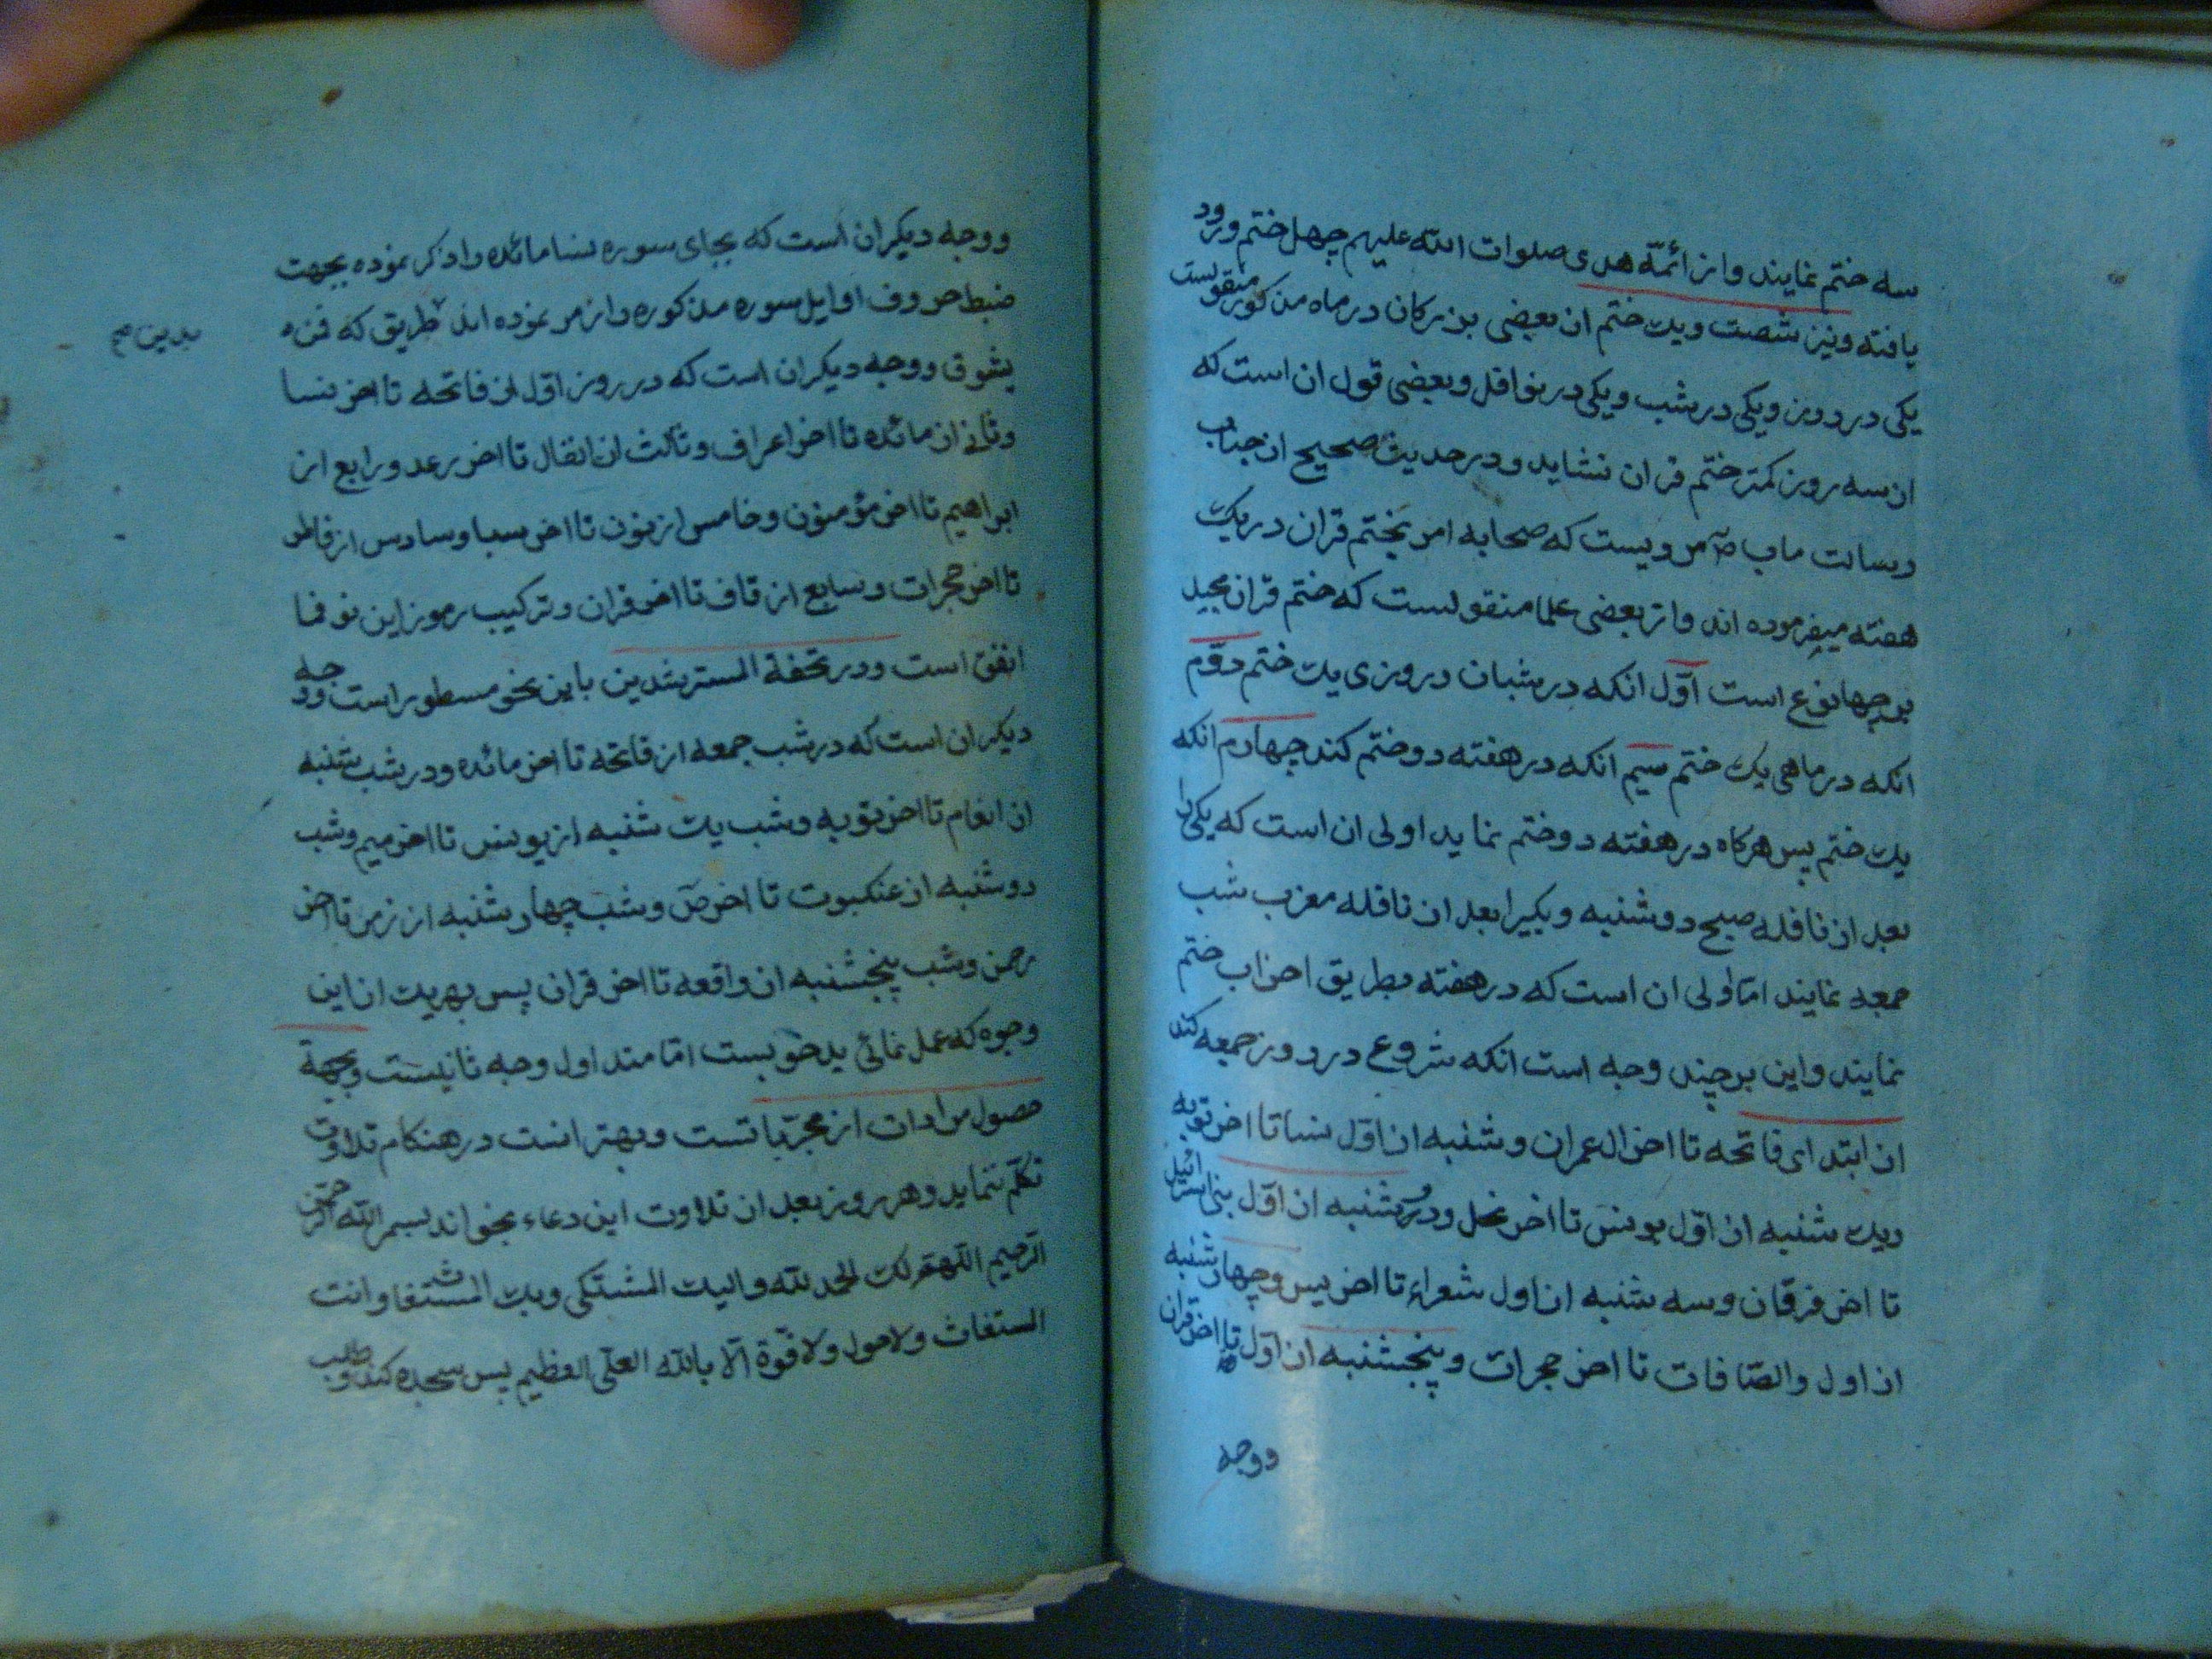 سه ختم نمایند و از ائمّه هدی صلوات الله علیهم چهل ختم ورود
یافته و نیز شصت و یک ختم از بعضی بزرکان در ماه مذکور منقولست
یکی در روز و یکی در شب و یکی در نوافل و بعضی قول ان است که
از سه روز کمتر ختم قران نشاید و در حدیث صحیح از جناب
رسالت ماب ص مرویست که صحابه امر بختم قران در یک
هفته میفرموده اند و از بعضی علما منقولست که ختم قران مجید
بر چهار نوع است اوّل انکه در شبان دروزی یک ختم دوّم
انکه در ماهی یک ختم سیم انکه در هفته دو ختم کند چهارم انکه
یک ختم پس هرکاه در هفته دو ختم نماید اولی ان است که یکی را
بعد از نافله صبح دوشنبه و یکیرا بعد از نافله مغرب شب
جمعه نمایند امّا اولی ان است که در هفته بطریق احزاب ختم
نمایند و این بر چند وجه است انکه شروع در روز جمعه کند
از ابتدای فاتحه تا اخر ال عمران و شنبه از اوّل نسا تا اخر توبه
و یک شنبه از اوّل یونس تا اخر نحل و در دوشنبه از اوّل بنی اسرائیل
تا اخر فرقان و سه شنبه از اول شعراء تا اخر یس و چهارشنبه
از اول والصّافات تا اخر حجرات و پنجشنبه از اوّل ق تا اخر قران
و وجه
و وجه دیکر ان است که بجای سوره نسا مائده را ذکر نموده بجهت
ضبط حروف اوایل سوره مذکوره و از مر نموده اند طریق که فن ه
بدین صح
بشوق و وجه دیکر ان است که در روز اوّل از فاتحه تا اخر نسا
و ثانی از مائده تا اخر اعراف و ثالث از انفال تا اخر رعد و رابع از
ابراهیم تا اخر مؤمنون و خامس از نون تا اخر سبا و سادس از فاطر
تا اخر حجرات و سابع از قاف تا اخر قران و ترکیب رموز این نوفما
انفق است و در تحفة المسترشدین باین نحو مسطور است و وجه
دیکر ان است که در شب جمعه از فاتحه تا اخر مائده و در شب شنبه
از انعام تا اخر توبه و شب یک شنبه از یونس تا اخر میم و شب
دوشنبه از عنکبوت تا اخر ص و شب چهارشنبه از زمر تا اخر
رحمن و شب پنجشنبه از واقعه تا اخر قران پس بهریک از این
وجوه که عمل نمائی بد خوبست امّا متداول وجه ثانیست و بجهة
حصول مرادات از مجرّباتست و بهتر انست در هنکام تلاوت
تکلّم ننماید و هر روز بعد از تلاوت این دعاء بخواند بسم الله الرحمن
الرّحیم اللهمّ لک الحمد لله و الیک المشتکی و بک المستغاث و انت
المستغاث و لا حول و لا قوّة الّا بالله العلّی العظیم پس سجده کند و طلب